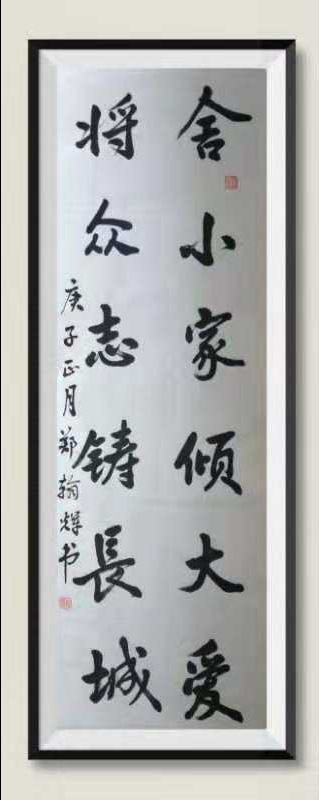 舍小家倾大爱
将众志铸長城
庚子正月郑翰辉书